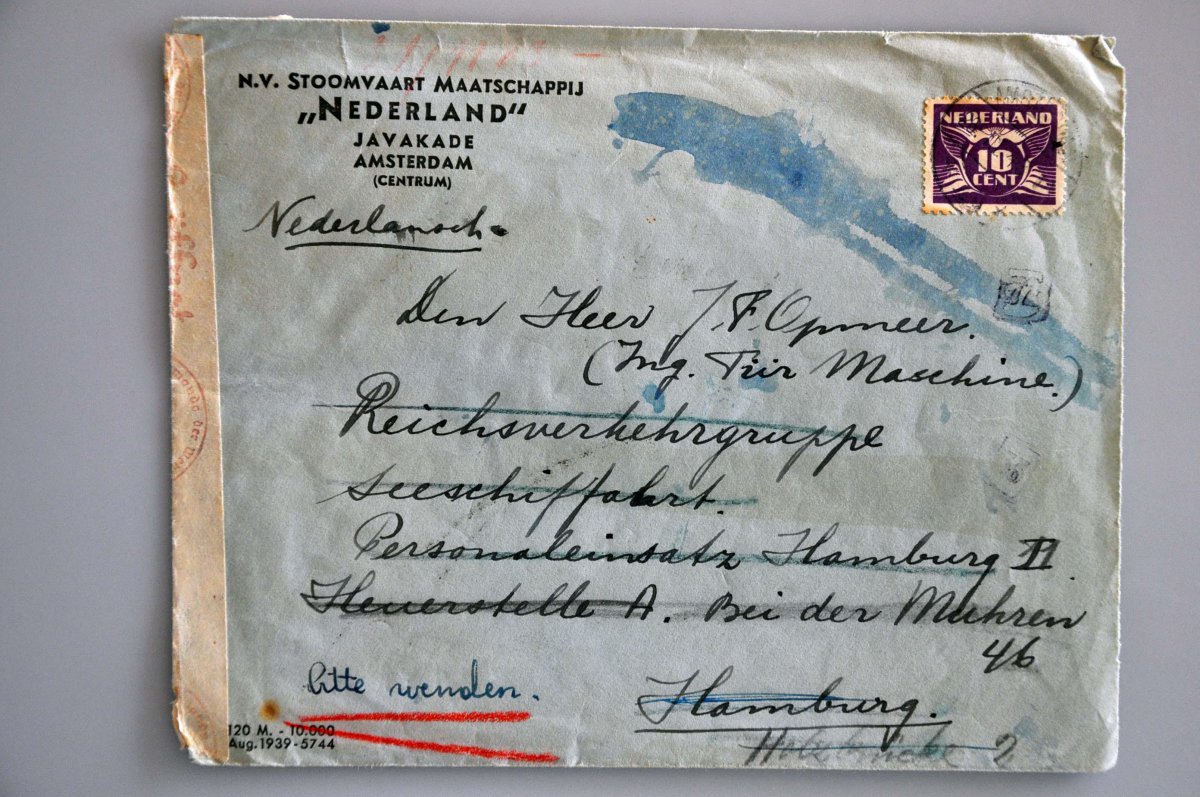 N.V. STOOMVAART MAATSCHAPPIJ
„NEDERLAND“
JAVAKADE
AMSTERDAM
(CENTRUM)
NEDERLAND
10
CENT
Nederlansch.
Den Heer J.F. Opmeer.
(Ing. Für Maschine.)
Reichsverkehrgruppe
Seeschiffahrt.
Personaleinsatz Hamburg II.
Heuerstelle A. Bei der Muhren
46
bitte wenden.
Hamburg.
Holzbrücke 2
120 M. - 10.000
Aug. 1939-5744